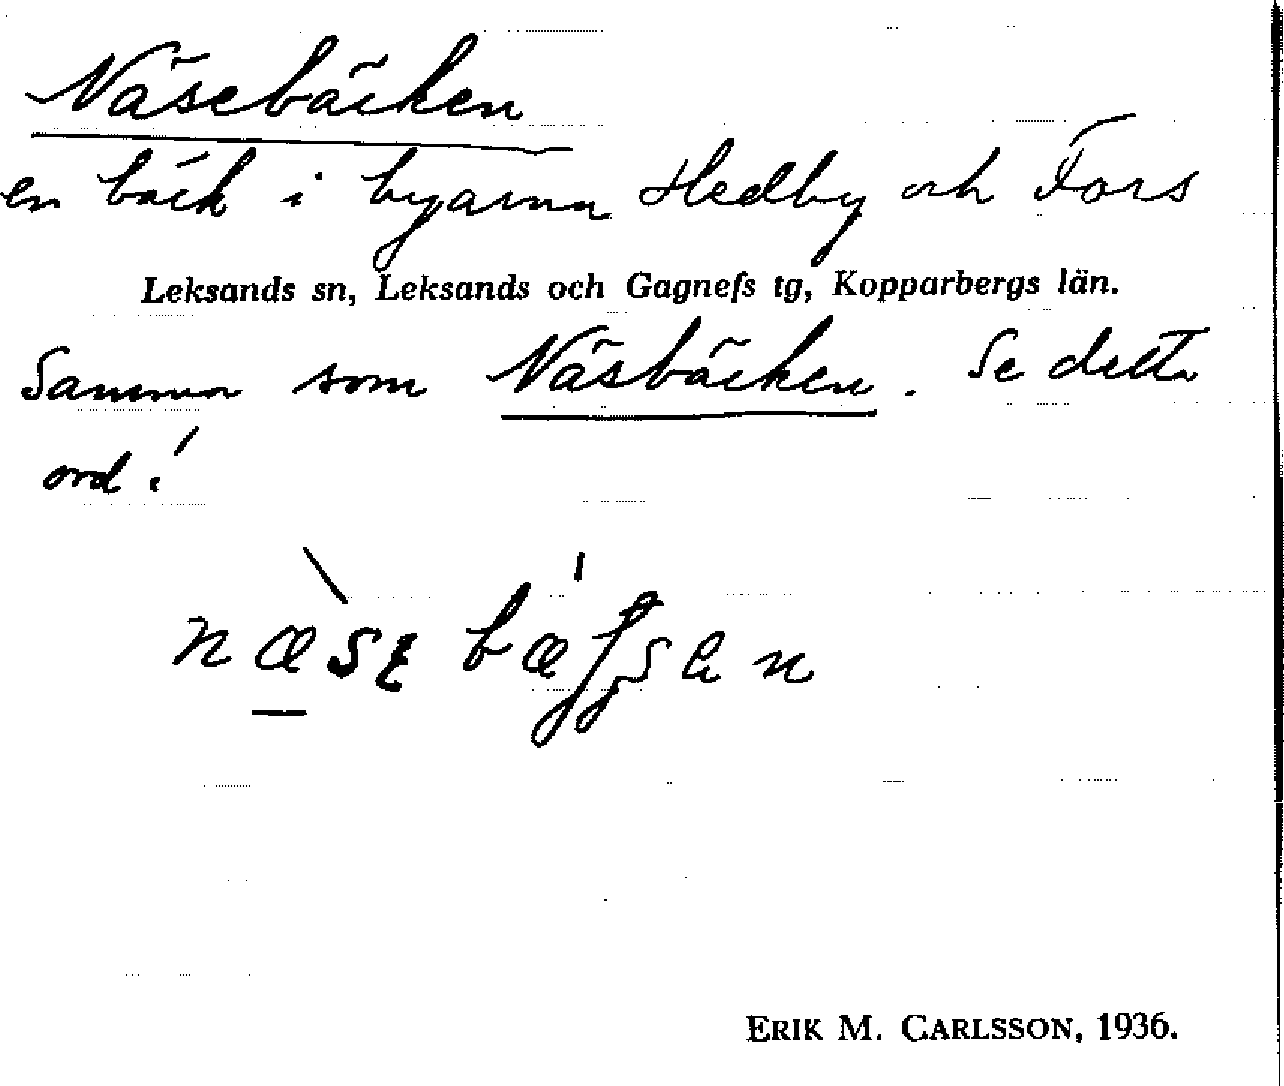 Näsebäcken
en bäck i byarna Hedby och Fors
Leksands sn, Leksands och Gagnefs tg, Kopparbergs län.
Samma som Näsbäcken. Se detta
ord!
ERIK M. CARLSSON, 1936.